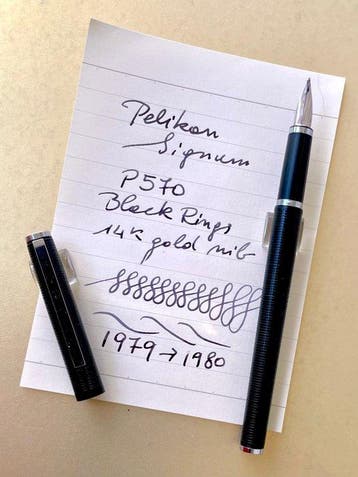 Pelikan
Signum
P570
Black Rings
14k gold nib
1979 → 1980